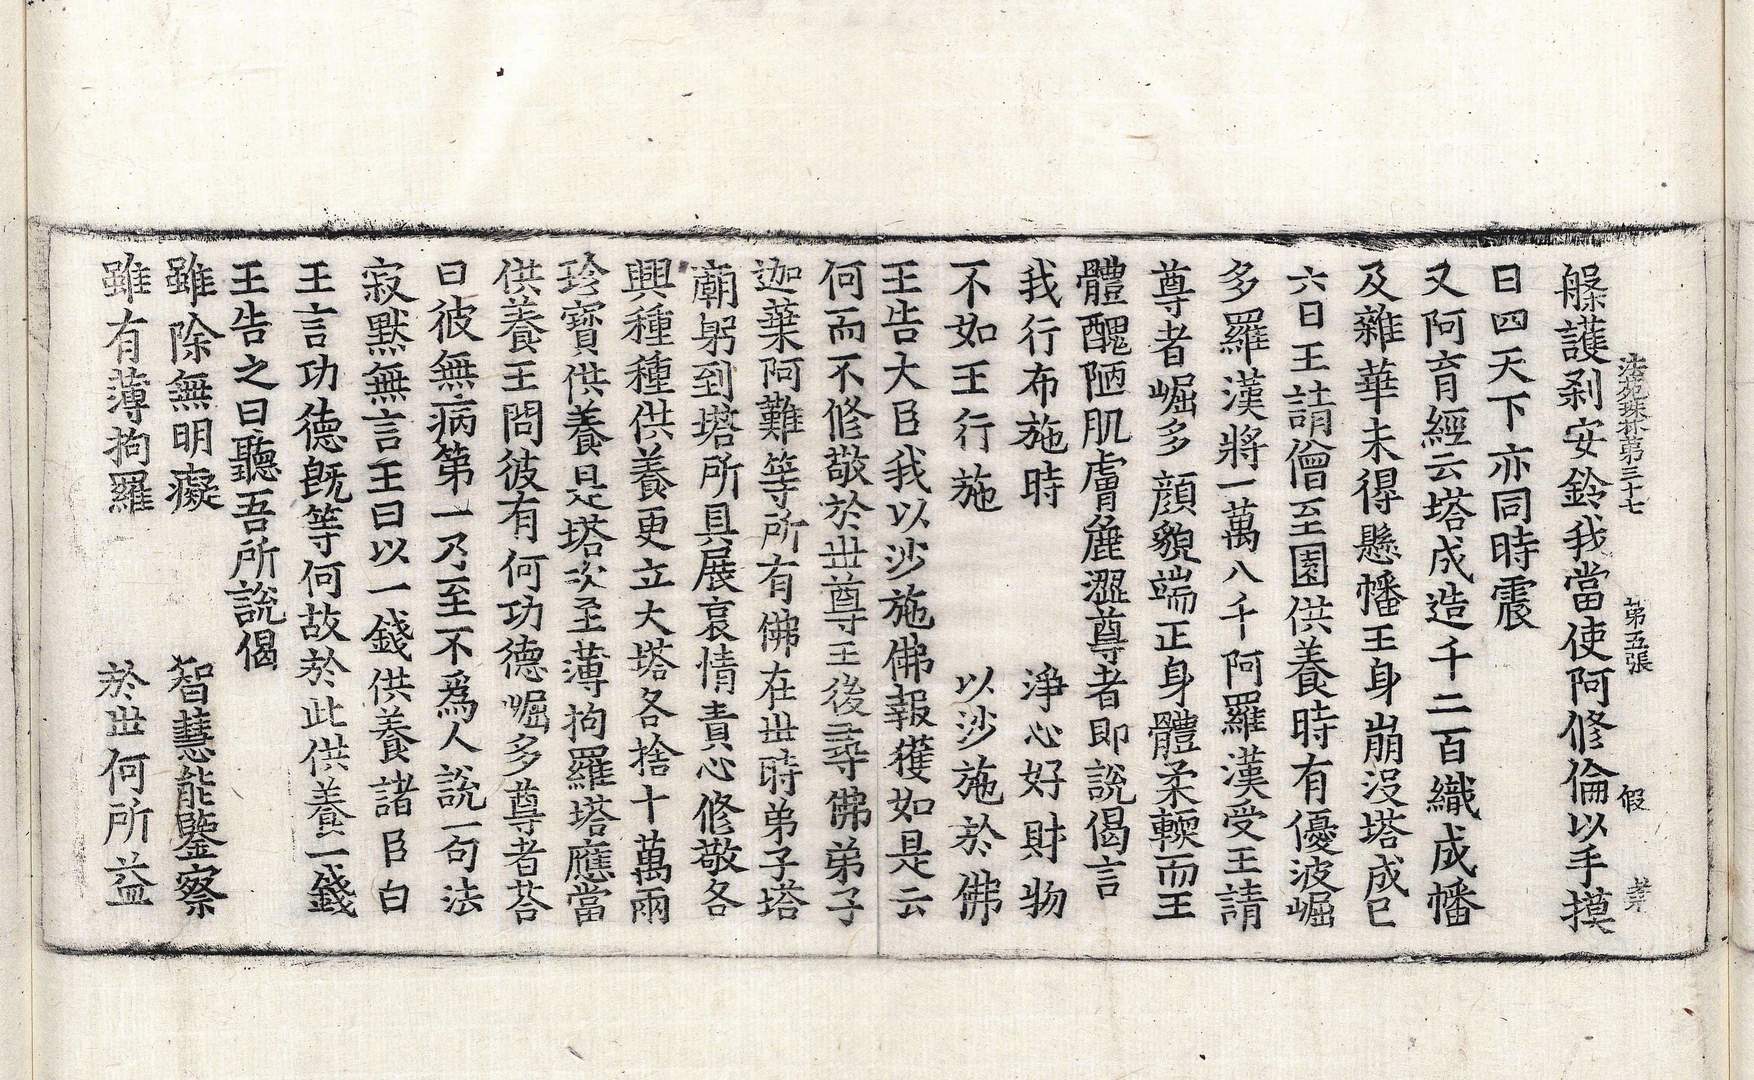 法苑珠林第三十七 第五張 假
槃護剎安鈴我當使阿修倫以手摸
日四天下亦同時震
又阿育經云塔成造千二百織成幡
及雜華未得懸幡王身崩沒塔成巳
六日王請僧至園供養時有優波崛
多羅漢將一萬八千阿羅漢受王請
尊者崛多顏貌端正身體柔輭而王
體醜陋肌膚麁澀尊者即說偈言
我行布施時 淨心好財物
不如王行施 以沙施於佛
王告大臣我以沙施佛報獲如是云
何而不修敬於世尊王後尋佛弟子
迦葉阿難等所有佛在世時弟子塔
廟躬到塔所具展哀情責心修敬各
興種種供養更立大塔各捨十萬兩
珍寶供養是塔次至薄拘羅塔應當
供養王問彼有何功德崛多尊者荅
曰彼無病第一乃至不爲人說一句法
寂默無言王曰以一錢供養諸臣白
王言功德旣等何故於此供養一錢
王告之曰聽吾所說偈
雖除無明癡 智慧能鑒察
雖有薄拘羅 於世何所益